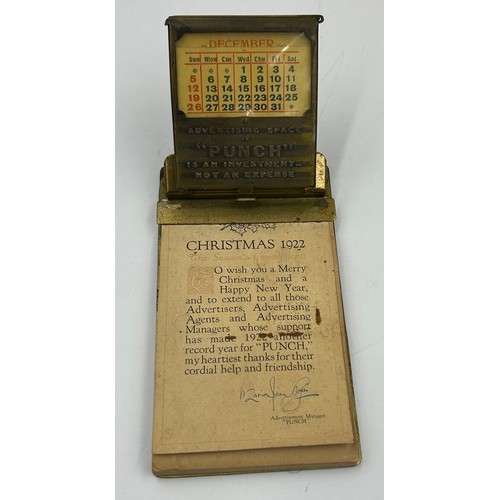 DECEMBER
Sun Mon Tue Wed Thu Fri Sat
1 2 3 4
5 6 7 8 9 10 11
12 13 14 15 16 17 18
19 20 21 22 23 24 25
26 27 28 29 30 31
ADVERTISING SPACE
IN
"PUNCH"
IS AN INVESTMENT—
NOT AN EXPENSE
CHRISTMAS 1922
The Season's Greetings
TO wish you a Merry
Christmas and a
Happy New Year,
and to extend to all those
Advertisers, Advertising
Agents and Advertising
Managers whose support
has made 1922 another
record year for "PUNCH,"
my heartiest thanks for their
cordial help and friendship.
Advertisement Manager
"PUNCH"